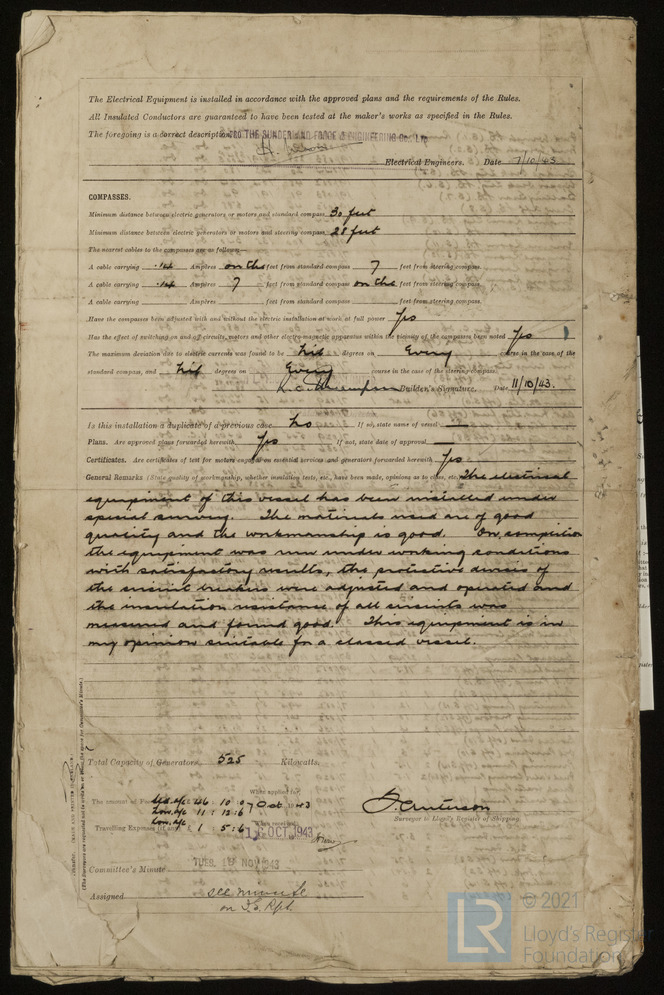 The Electrical Equipment is installed in accordance with the approved plans and the requirements of the Rules.
All Insulated Conductors are guaranteed to have been tested at the maker's works as specified in the Rules.
The foregoing is a correct description. THE SUNDERLAND FORGE & ENGINEERING Co., Ltd.
Electrical Engineers. Date 7/10/43.
COMPASSES.
Minimum distance between electric generators or motors and standard compass 30 feet
Minimum distance between electric generators or motors and steering compass 28 feet
The nearest cables to the compasses are as follows:—
A cable carrying .14 Ampères on the feet from standard compass 7 feet from steering compass.
A cable carrying .14 Ampères 7 feet from standard compass on the feet from steering compass.
A cable carrying Ampères feet from standard compass feet from steering compass.
Have the compasses been adjusted with and without the electric installation at work at full power Yes
Has the effect of switching on and off circuits, motors and other electro-magnetic apparatus within the vicinity of the compasses been noted Yes
The maximum deviation due to electric currents was found to be Nil degrees on Every course in the case of the
standard compass, and Nil degrees on Every course in the case of the steering compass.
Builder's Signature. Date 11/10/43.
Is this installation a duplicate of a previous case No If so, state name of vessel —
Plans. Are approved plans forwarded herewith Yes If not, state date of approval —
Certificates. Are certificates of test for motors engaged on essential services and generators forwarded herewith Yes
General Remarks (State quality of workmanship, whether insulation tests, etc., have been made, opinions as to class, etc. The electrical
equipment of this vessel has been installed under
special survey. The materials used are of good
quality and the workmanship is good. On completion
the equipment was run under working conditions
with satisfactory results, the protective devices of
the circuit breakers were adjusted and operated and
the insulation resistance of all circuits was
measured and found good. This equipment is in
my opinion suitable for a classed vessel.
Total Capacity of Generators 525 Kilowatts.
The amount of 46 : 10 : 0 When applied for, 7 Oct 1943
11 : 12 : 6
Travelling Expenses (if any) £ 1 : 5 : 6 When received, 16 OCT 1943
Surveyor to Lloyd's Register of Shipping
Committee's Minute TUES. NOV 1943
Assigned see minute
on F.E. Rpt.
(The Surveyors are requested not to write on or below the space for Committee's Minute.)
LR
© 2021
Lloyd's Register
Foundation